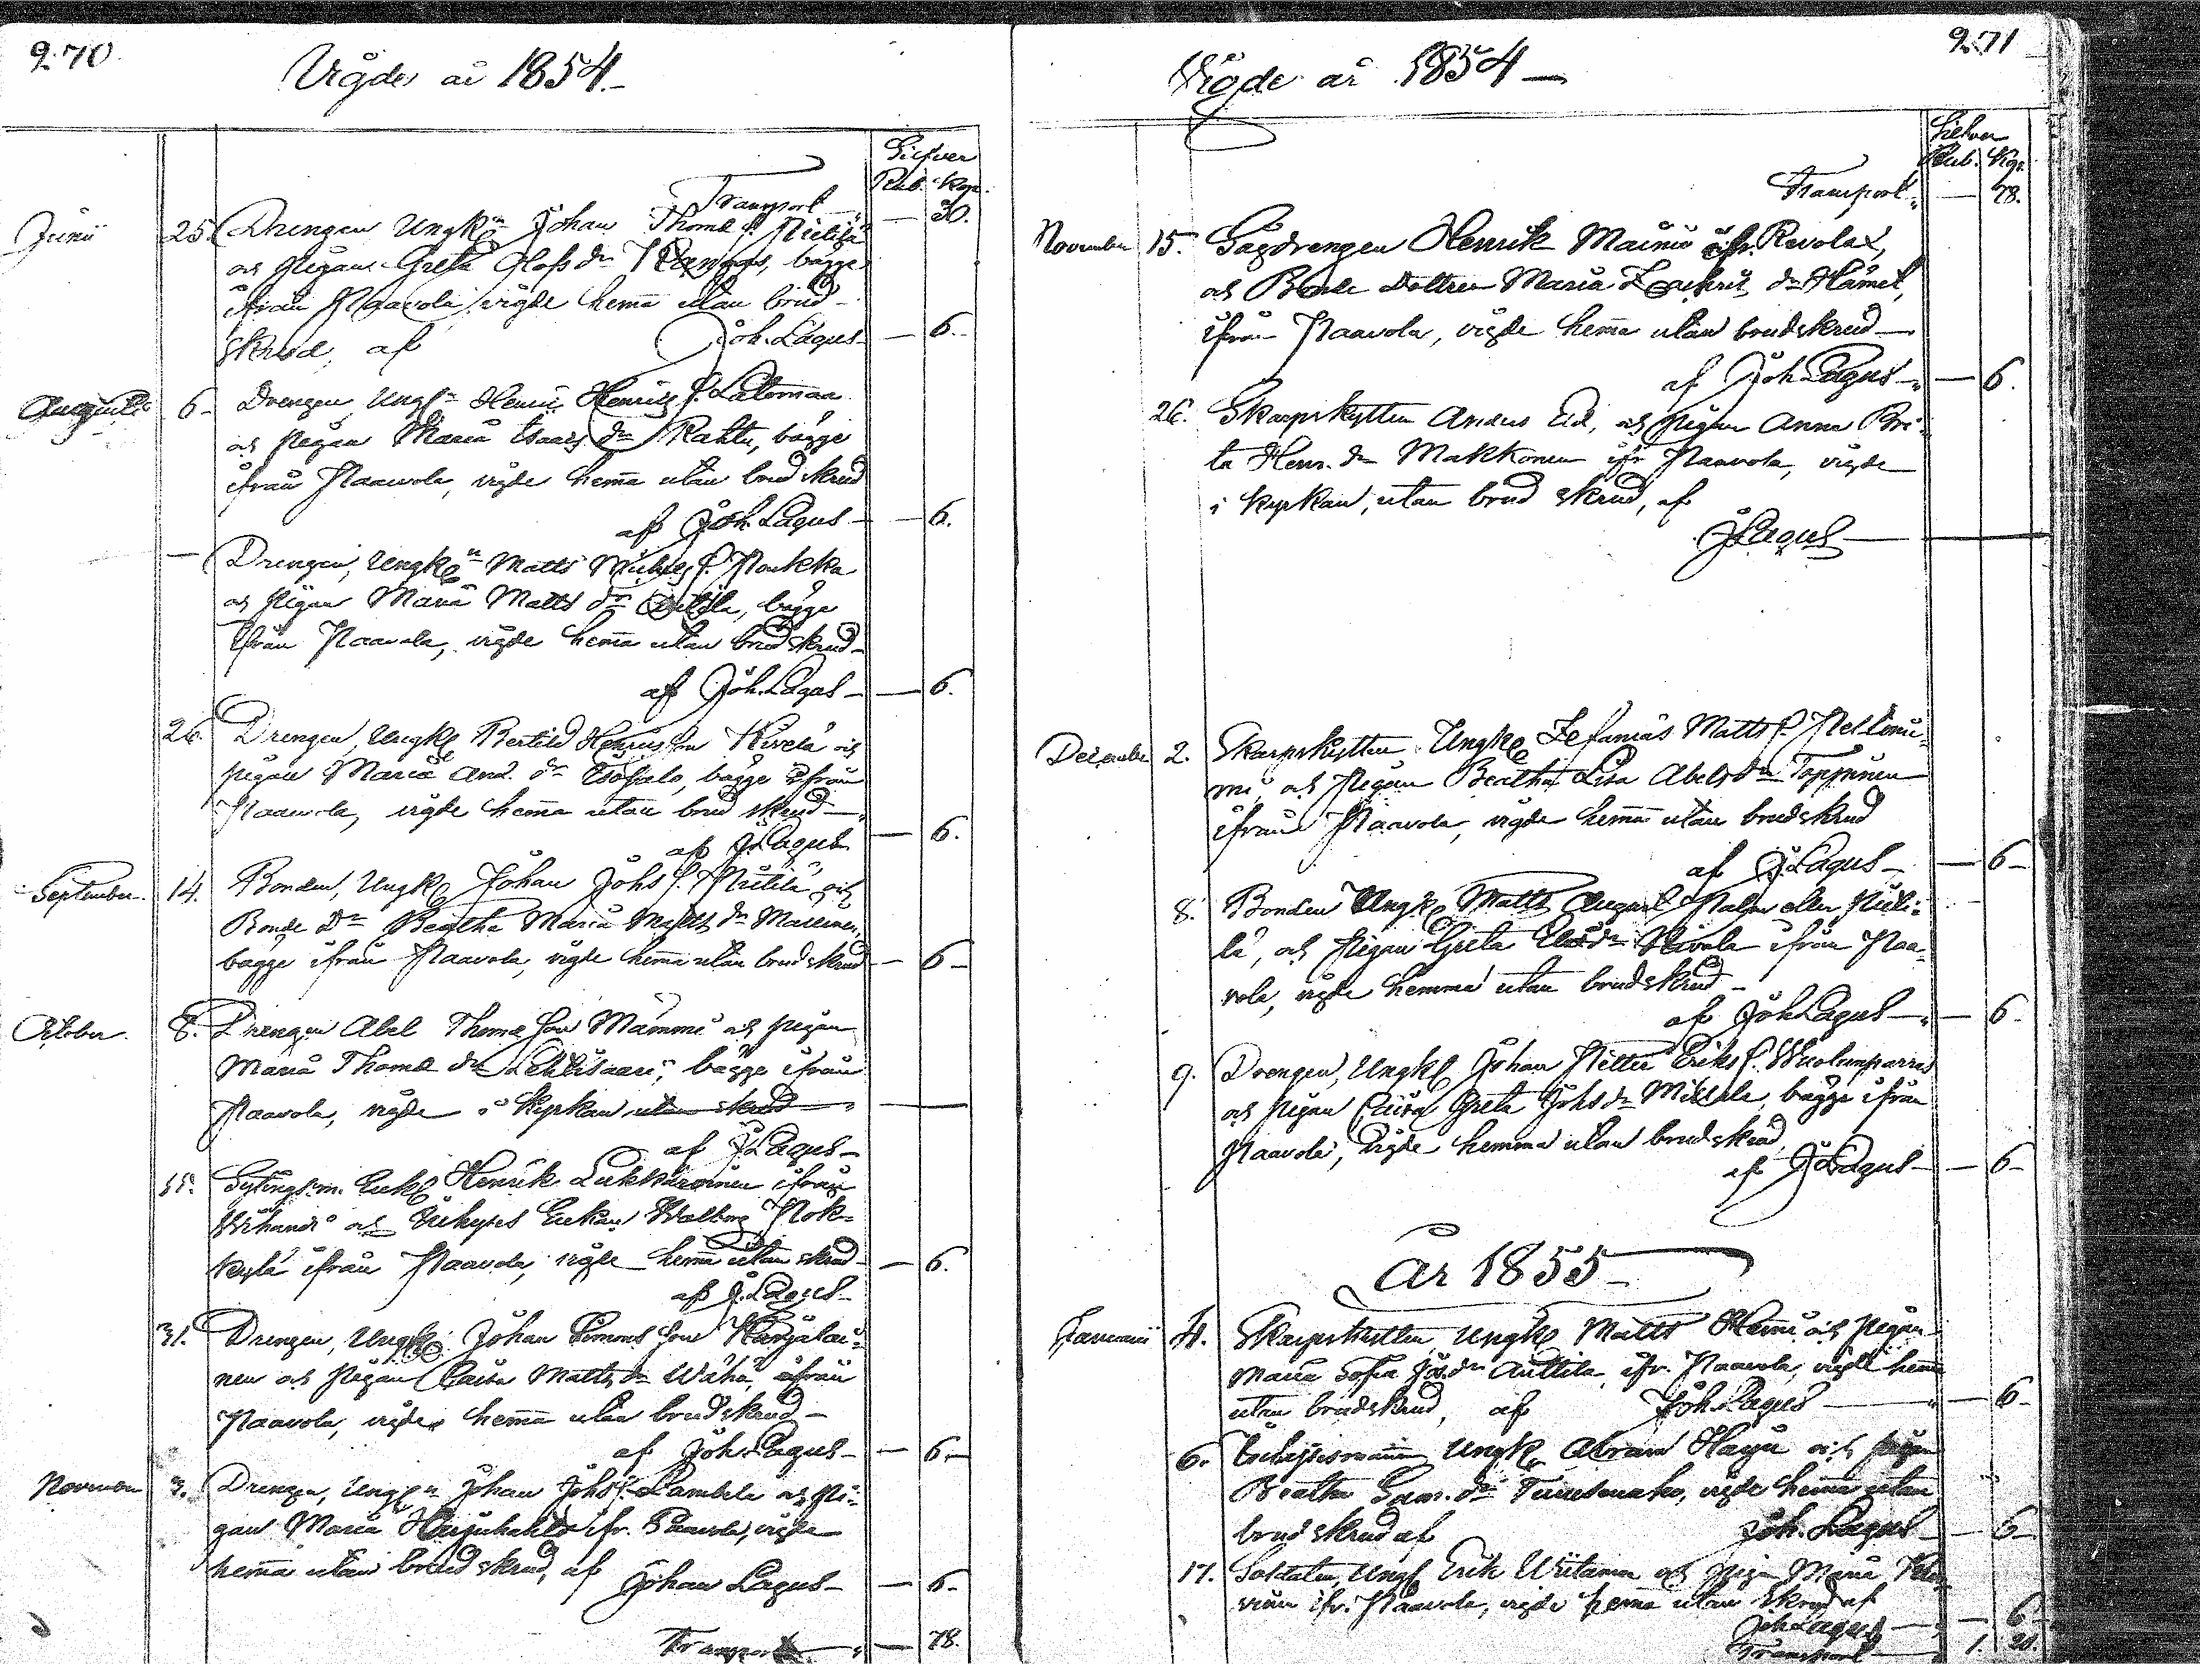 270
Vigde år 1854.
Silfver
Rub. Kop.
Transport — 30.
Junii 25. Drengen Ungk. Johan Thom. s. Niitilä
och Pigan Greta dr Kangas, bägge
ifrån Paavola, vigde hemma utan brud-
skrud, af Joh. Lagus — 6.
Augusti 6. Drengen, Ungk. Henric Henrics s. Latomaa
och Pigan Maria Isaacs dr Rahtu, bägge
ifrån Paavola, vigde hemma utan brudskrud
af Joh. Lagus — 6.
— Drengen, Ungk. Matts Michels s. Poukka
och Pigan Maria Matts dr Anttila, bägge
ifrån Paavola, vigde hemma utan brudskrud
af Joh. Lagus — 6.
26. Drengen, Ungk. Bertild Henricsson Kivelä och
Pigan Maria And. dr Isosalo, bägge ifrån
Paavola, vigde hemma utan brudskrud
af J. Lagus — 6.
September 14. Bonden, Ungk. Johan Johs s. Niitilä och
Bonde Dr Beatha Maria Matts dr
bägge ifrån Paavola, vigde hemma utan brudskrud — 6
October 8. Drengen Abel Thomæ son Mämmi och Pigan
Maria Thom. dr Lehtisaari, bägge ifrån
Paavola, vigde i Kyrkan utan skrud —
af J. Lagus
15. Sytings m. Enkl. Henrik Lukkaroinen ifrån
Vihandi och Inhyses Enkan Walborg Pök-
kylä ifrån Paavola, vigde hemma utan skrud — 6.
af J. Lagus
31. Drengen, Ungk. Johan Simons son Karjalai-
nen och Pigan Caisa Matts dr Wähä, ifrån
Paavola, vigde hemma utan brudskrud
af Joh. Lagus — 6.
November 3. Drengen, Ungk. Johan Johs s. Lambela och Pi-
gan Maria ifr. Paavola, vigde
hemma utan brudskrud, af Johan Lagus — 6.
Transport — 78.
271
Vigde år 1854 —
Silfver
Rub. Kop.
Transport — 78.
November 15. Gågdrengen Henrik Mainio ifr. Revolax,
och Bonde Dottren Maria Zachris dr Hämet,
ifrån Paavola, vigde hemma utan brudskrud
af Joh. Lagus — 6.
26. Skarpskytten Anders Eld, och Pigan Anna Bri-
ta Henr. dr Makkonen ifr. Paavola, vigde
i Kyrkan, utan brudskrud, af
J. Lagus —
December 2. Skarpskytten Ungk. Zefanias Matts s. Nellimi-
mi, och Pigan Beatha Lisa Abels dr Toppinen
ifrån Paavola, vigde hemma utan brudskrud
af J. Lagus — 6
8. Bonden Ungk. Matts August Palm eller Niiti-
lä, och Pigan Greta Elias dr Kivola ifrån Paa-
vola, vigde hemma utan brudskrud
af Joh. Lagus — 6
9. Drengen, Ungk. Johan Petter Eriks s. Wuolunparras
och Pigan Caisa Greta Johs dr Mikkola, bägge ifrån
Paavola, vigde hemma utan brudskrud
af J. Lagus — 6
År 1855
Januarii 4. Skarpskytten, Ungk. Matts Hemmi och Pigan
Maria Sofia Joh. dr Anttila, ifr. Paavola, vigde hemma
utan brudskrud, af Joh. Lagus — 6
6. Inhysesmannen Ungk. Abram Harju och Pigan
Beatha Sam. dr Tuuesmaho, vigde hemma utan
brudskrud af Joh. Lagus — 6
17. Soldaten, Ungk. Erik Wiitamaa och Pigan Maria
ifr. Paavola, vigde hemma utan skrud af
Joh. Lagus — 6
Transport 1. 20.